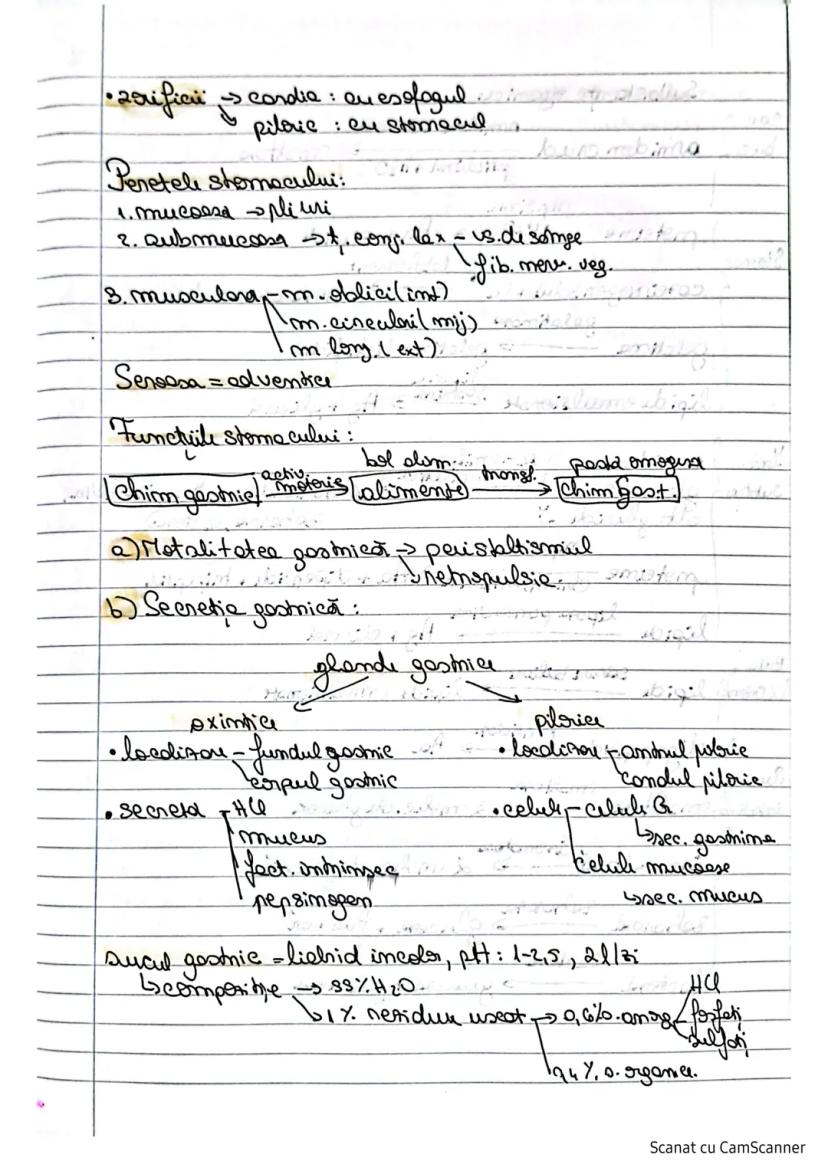 • 2 orificii → cardia : cu esofagul
↘ piloric : cu stomacul
Peretele stomacului:
1. mucoasa → pliuri
2. submucoasa → ț. conj. lax – vs. de sânge
fib. nerv. veg.
3. musculara – m. oblici (int)
m. circulari (mij)
m long. (ext)
Seroasa = adventice
Funcțiile stomacului :
bol alim. pasta omogena
Chim gastric activ. motorie → alimente transf. → Chim Gast.
a) Motalitatea gastrică → peristaltismul
↘ retropulsie
b) Secreția gastrică :
glande gastrice
oxintice pilorice
• localizare – fundul gastric • localizare – antrul piloric
corpul gastric canalul piloric
• secretă – HCl • celule – celule G
mucus ↳ sec. gastrina
fact. intrinsec celule mucoase
pepsinogen ↳ sec. mucus
sucul gastric = lichid incolor, pH : 1-2,5 , 2l/zi
↳ compoziție → 99% H2O HCl
↘ 1% reziduu uscat → 0,6% anorg fosfați
sulfați
0,4% s. organice.
Scanat cu CamScanner